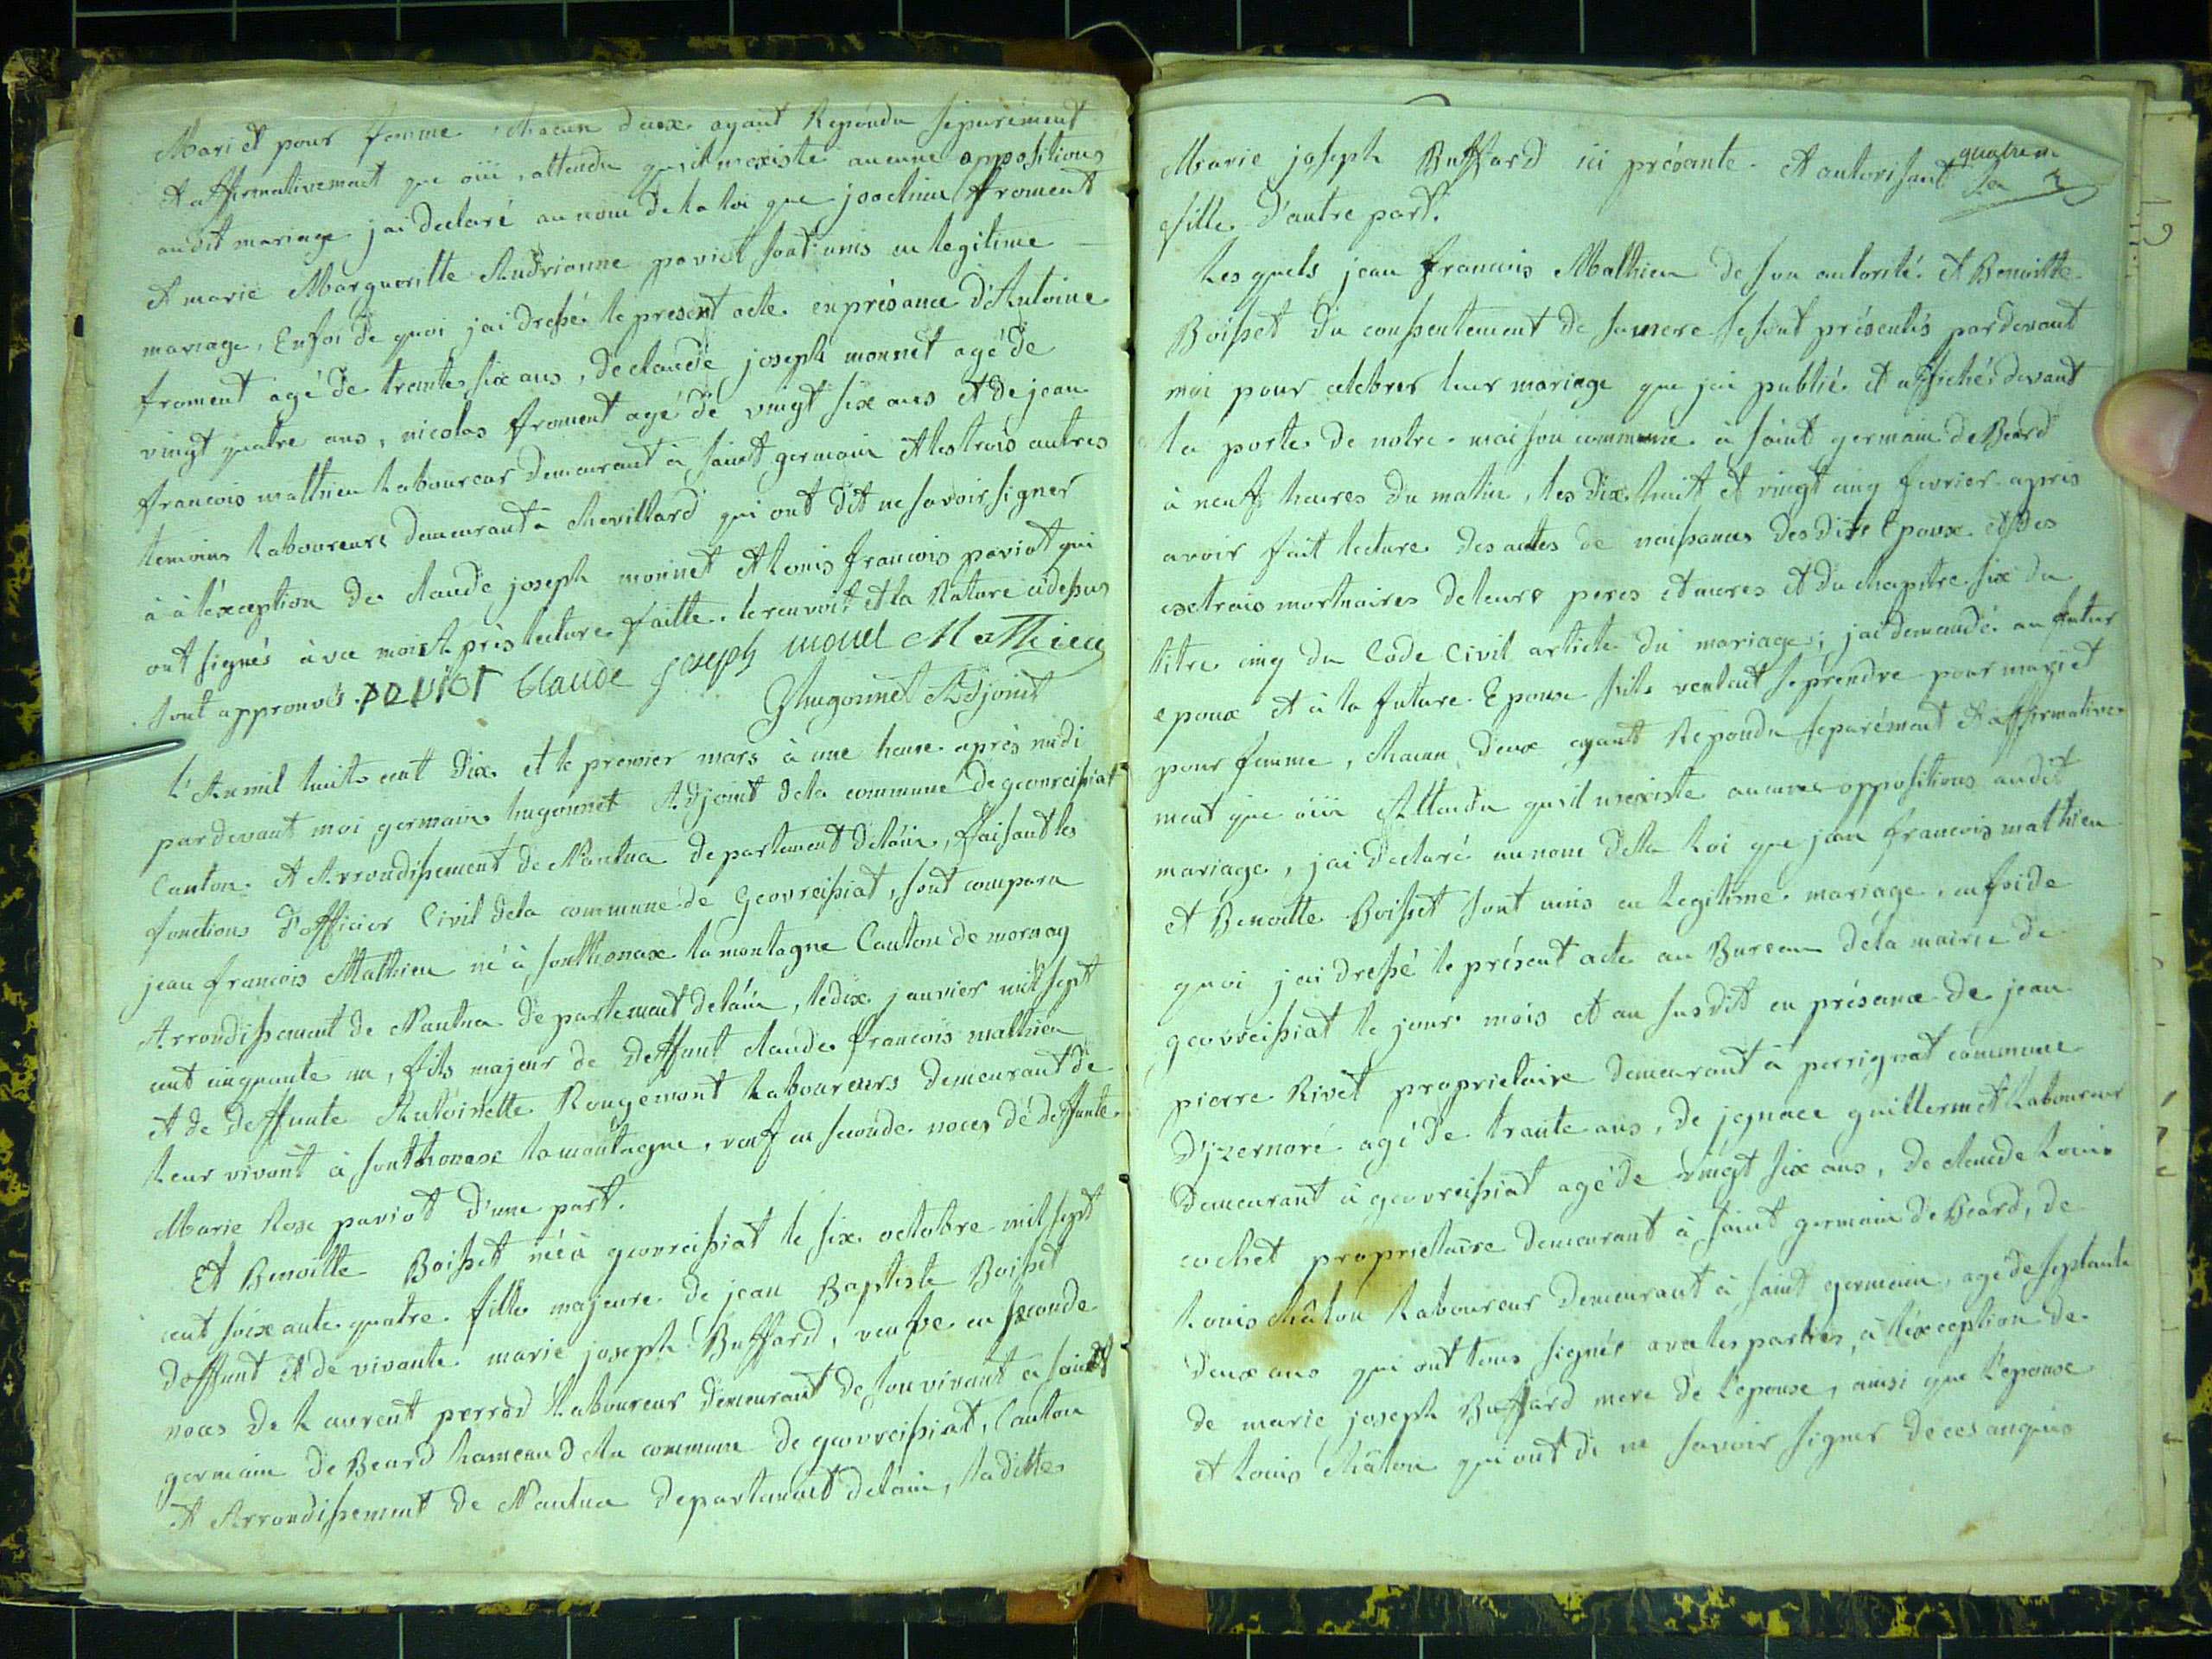 Mari et pour femme, chacun d'eux ayant Repondu séparément
et affirmativement que oüi, attendu qu'il n'existe aucune oppositions
audit mariage jai declaré au nom de la loi que joachim froment
et marie Margueritte Andrianne paviot sont unis en legitime
mariage, En foi de quoi jai dressé le present acte en présance d'Antoine
froment agé de trante six ans, de claude joseph monnet agé de
vingt quatre ans, nicolas froment agé de vingt six ans et de jean
francois mathieu Laboureur demeurant à saint germain et les trois autres
temoins Laboureurs demeurant à chevillard qui ont dit ne savoir signer
à à léxception de claude joseph monnet et Louis francois paviot qui
ont signés avec moi après lecture faitte. le renvoit et la Rature cidessus
sont approuvés. paviot Claude joseph monet Mathieu
hugonnet Adjoint
L'An mil huit cent dix et le premier mars à une heure après midi
pardevant moi germain hugonnet Adjoint dela commune de geovreissiat
Canton et Arrondissement de Nantua departement deláin, faisant les
fonctions d'officier Civil dela commune de Geovreissiat, sont comparu
jean francois Mathieu né à sonthonnax la montagne Canton de mornay
Arrondissement de Nantua departement deláin, le dix janvier mil sept
cent cinquante un, fils majeur de deffunt claude francois mathieu
et de deffunte Antoinette Rougemont Laboureurs demeurant de
Leur vivant à sonthonax la montagne, veuf en seconde noces de deffunte
Marie Rose paviot d'une part.
Et Benoitte Boisset née à geovreissiat le six octobre mil sept
cent soixante quatre fille majeure de jean Baptiste Boisset
deffunt et de vivante marie joseph Buffard, veufve en seconde
noces de Laurent perrod Laboureur demeurant de son vivant à saint
germain de Beard hameau dela commune de geovreissiat, Canton
et Arrondissement de Nantua departement deláin, laditte
quatre
Marie joseph Buffard ici présante et autorisant sa
fille d'autre part.
Les quels jean francois Mathieu de son autorité et Benoitte
Boisset du consentement de sa mere se sont présentés pardevant
moi pour celebrer leur mariage que jai publié et affiché devant
la porte de notre maison commune à saint germain de Beard
à neuf heures du matin, les dix huit et vingt cinq fevrier apres
avoir fait lecture des actes de naissances des dits Epoux et des
extrais mortuaires de leurs peres et meres et du chapitre six du
titre cinq du Code Civil article du mariage, jai demandé au futur
epoux et à la future Epouse s'ils veulent se prendre pour mari et
pour femme, chacun d'eux ayant Repondu séparément et affirmative
ment que oüi Attendu qu'il n'existe aucunes oppositions audit
mariage, jai declaré au nom dela Loi que jean francois mathieu
et Benoitte Boisset sont unis en Legitime mariage, en foi de
quoi jai dressé le présent acte au Bureau dela mairie de
geovreissiat le jour mois et an susdit en présance de jean
pierre Rivet proprietaire demeurant à perrignat commune
D'jzernore agé de trante ans, de jgnace guillermet Laboureur
demeurant à geovreissiat agé de vingt six ans, de claude Louis
cochet proprietaire demeurant à saint germain de Beard, de
Louis châton Laboureur demeurant à saint germain, agé de septante
deux ans qui ont tous signés avec les parties, à léxception de
de marie joseph Buffard mere de l'epouse, ainsi que l'epouse
et Louis châton qui ont di ne savoir signer de ces anquis